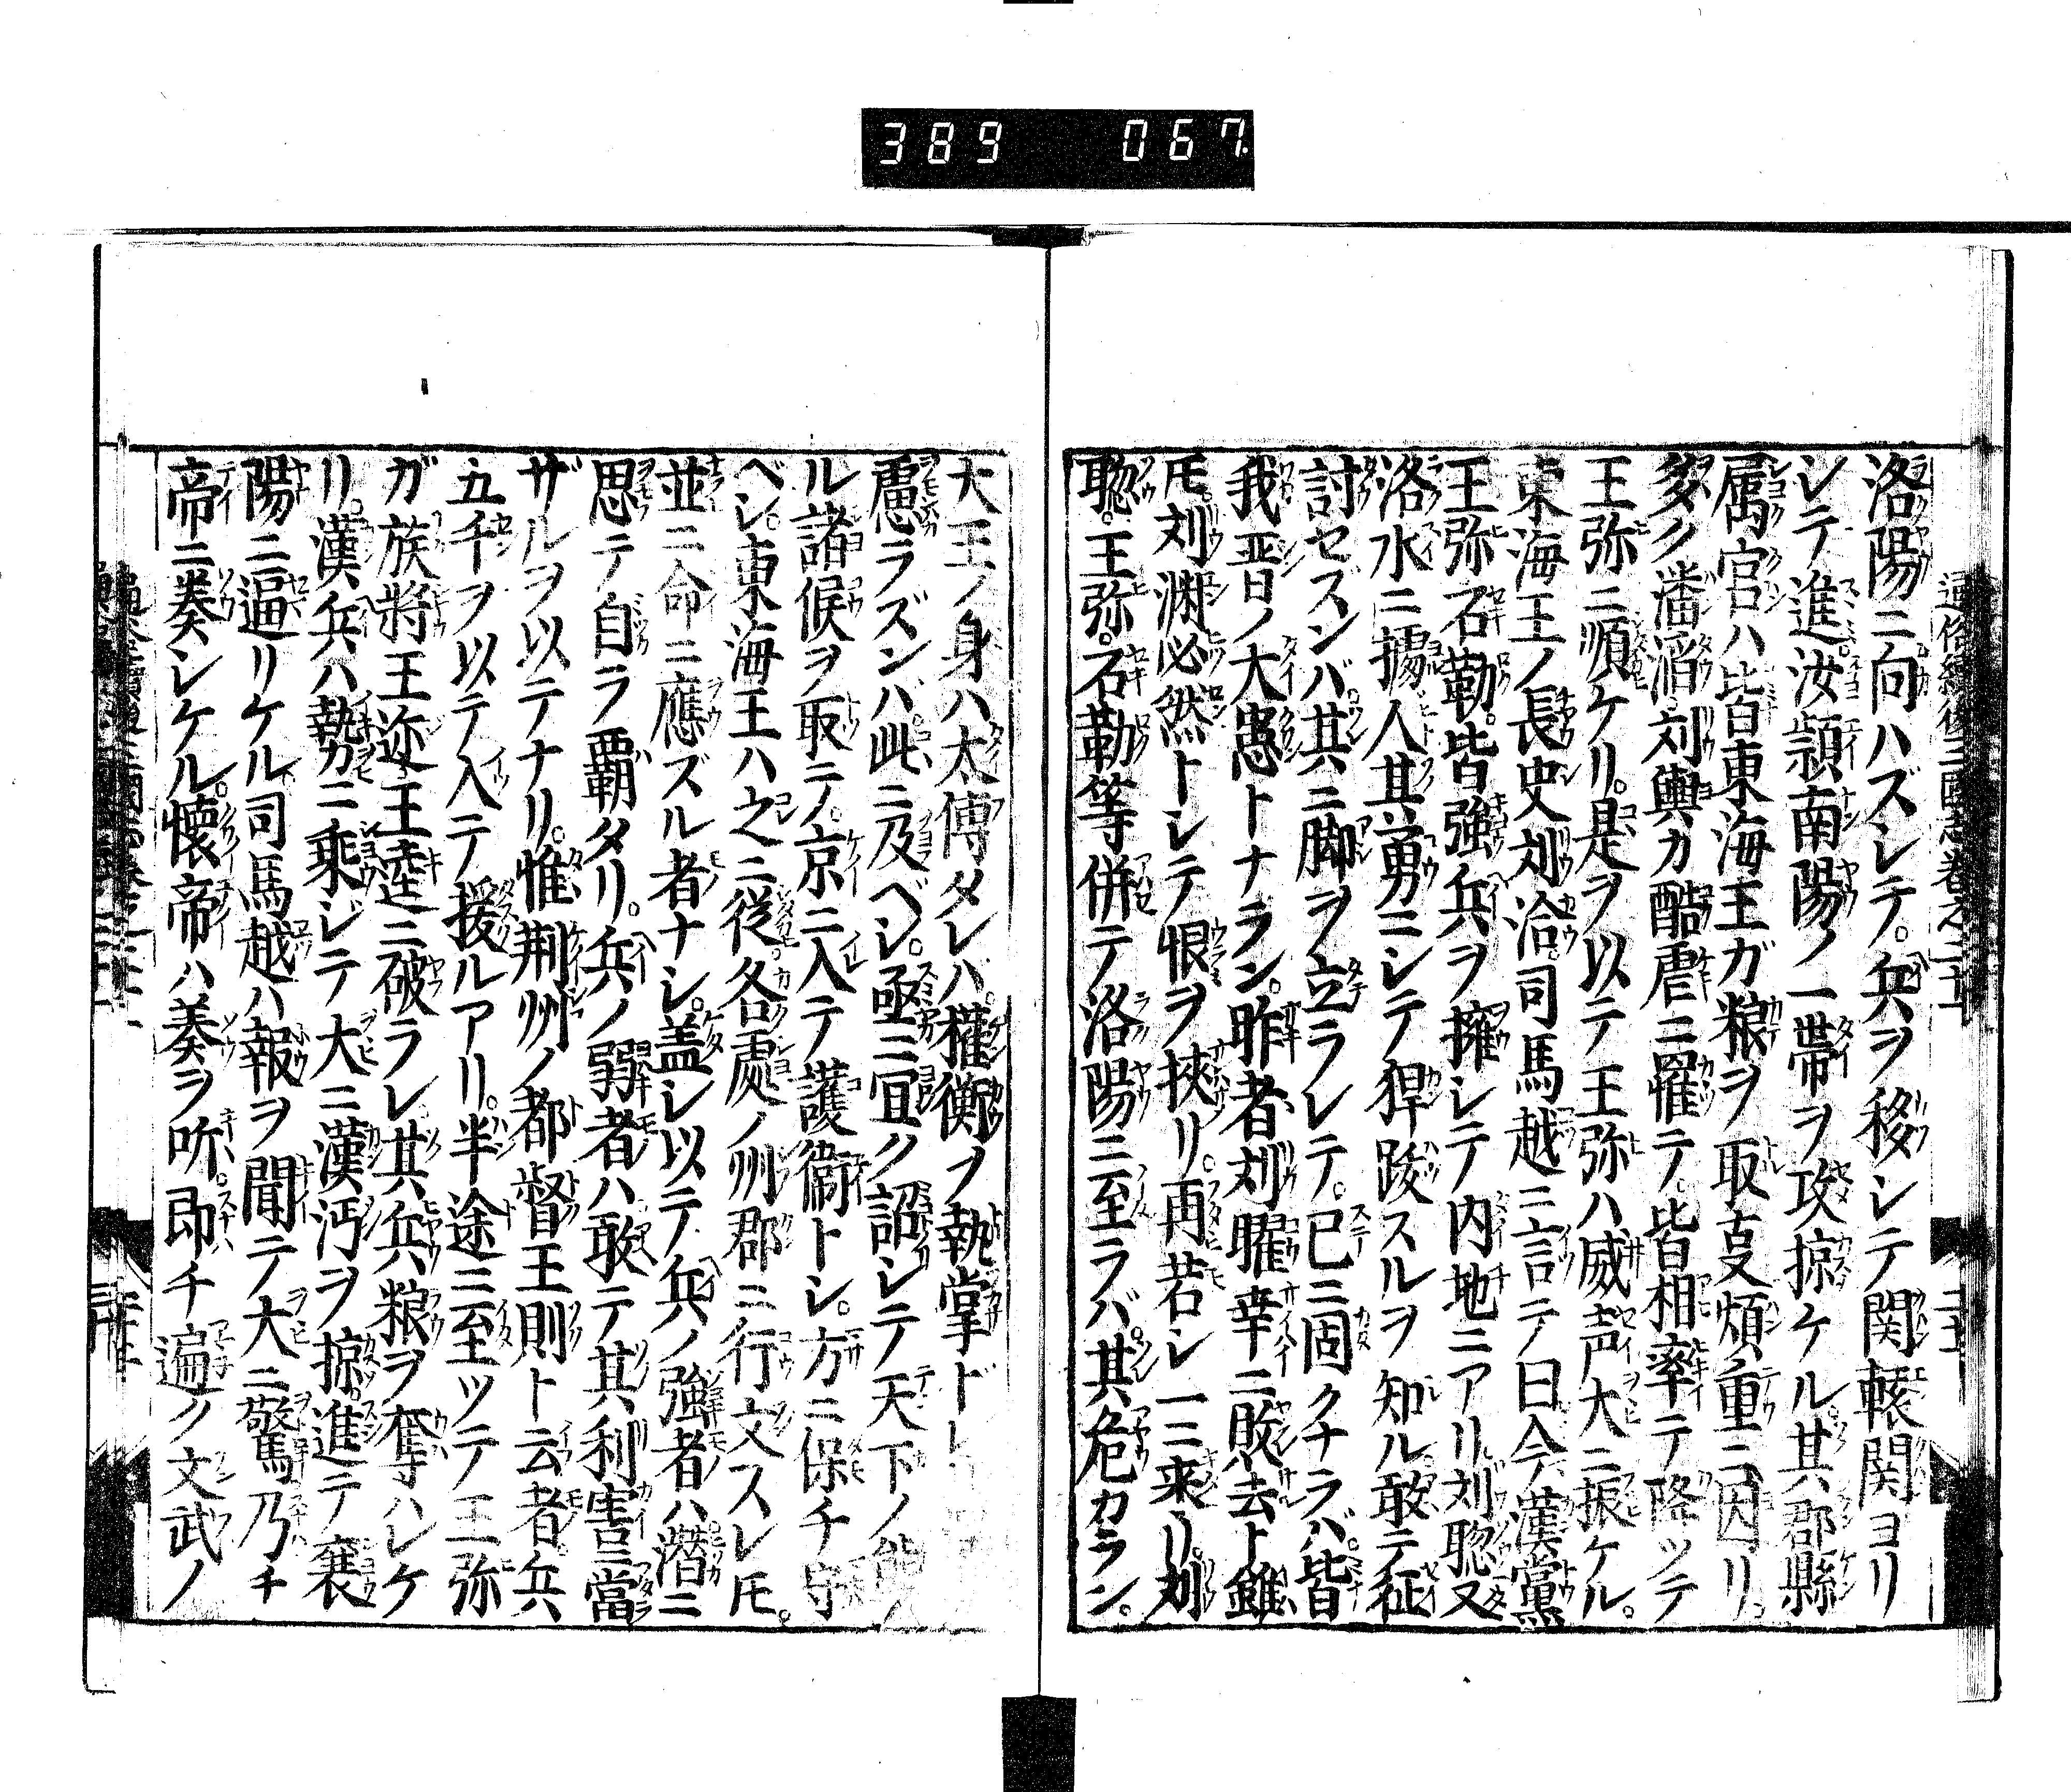 389 067
洛陽ニ向ハズシテ。兵ヲ移シテ関轘関ヨリ
シテ進。汝頴南陽ノ一帯ヲ攻掠ケル其郡縣
属官ハ皆東海王ガ粮ヲ取支煩重ニ因リ。
夛ク潘滔。刘輿カ酷虐ニ罹テ。皆相率テ降ッテ
王弥ニ順ケリ。是ヲ以テ王弥ハ威声大ニ振ケル。
東海王ノ長史刘洽。司馬越ニ言テノ曰今漢黨
王弥石勒。皆強兵ヲ擁シテ内地ニアリ刘聡又
洛水ニ據。人其勇ニシテ猂跋スルヲ知ル敢テ征
討セスンバ其ニ脚ヲ立ラレテ。已ニ固クナラバ。皆
我晋ノ大患トナラン。昨者刘曜幸ニ敗去ト雖
𪜈。刘渊必然トシテ恨ヲ挾リ。再若シ一ニ来リ。刘
聡。王弥。石勒等併テ洛陽ニ至ラバ。其危カラン。
大王ノ身ハ太傅タレハ。權衡ヲ執掌ド
慮ラズンバ此ニ及ベシ。亟ニ宜ク詔シテ天下ノ
ル諸侯ヲ取ニノ。京ニ入テ護衞トシ。方ニ保チ守
ベシ。東海王ハ之ニ從。各處ノ州郡ニ行文スレ𪜈。
並ニ命ニ應ズル者ナシ。盖シ以テ兵ノ強者ハ潜ニ
思テ自ラ覇タリ。兵ノ弱者ハ敢テ其利害ニ當
ザルヲ以テナリ。惟荆州ノ都督王則ト云者。兵
五千ヲ以テ入テ援ルアリ。半途ニ至ッテ王弥
ガ族將王迩王逵ニ破ラレ。其兵粮ヲ奪ハレケ
リ。漢兵ハ埶カニ乘ジテ大ニ漢沔ヲ掠。進テ襄
陽ニ逼リケル司馬越ハ報ヲ聞テノ大ニ驚乃チ
帝ニ奏シケル。懐帝ハ奏ヲ吩。即チ遍ク文武ノ